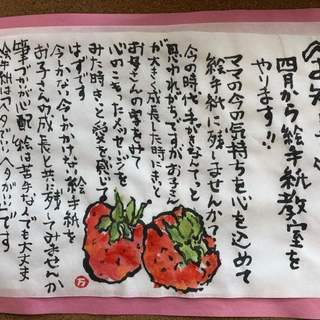 お知らせ
四月から絵手紙教室を
やります!!
ママの今の気持ちを心を込めて
絵手紙に残しませんか?
今の時代、手がきなんてっと
思われがちですがお子さん
が大きく成長した時にきっと
お母さんの愛をみて
心のこもったメッセージを
みた時きっと愛を感じて
はずです
今しかない、今しかかけない絵手紙を
お子さんの成長と共に残してみませんか
筆づかいが心配、絵は苦手な人でも大丈夫
絵手紙はヘタでいいヘタがいいです